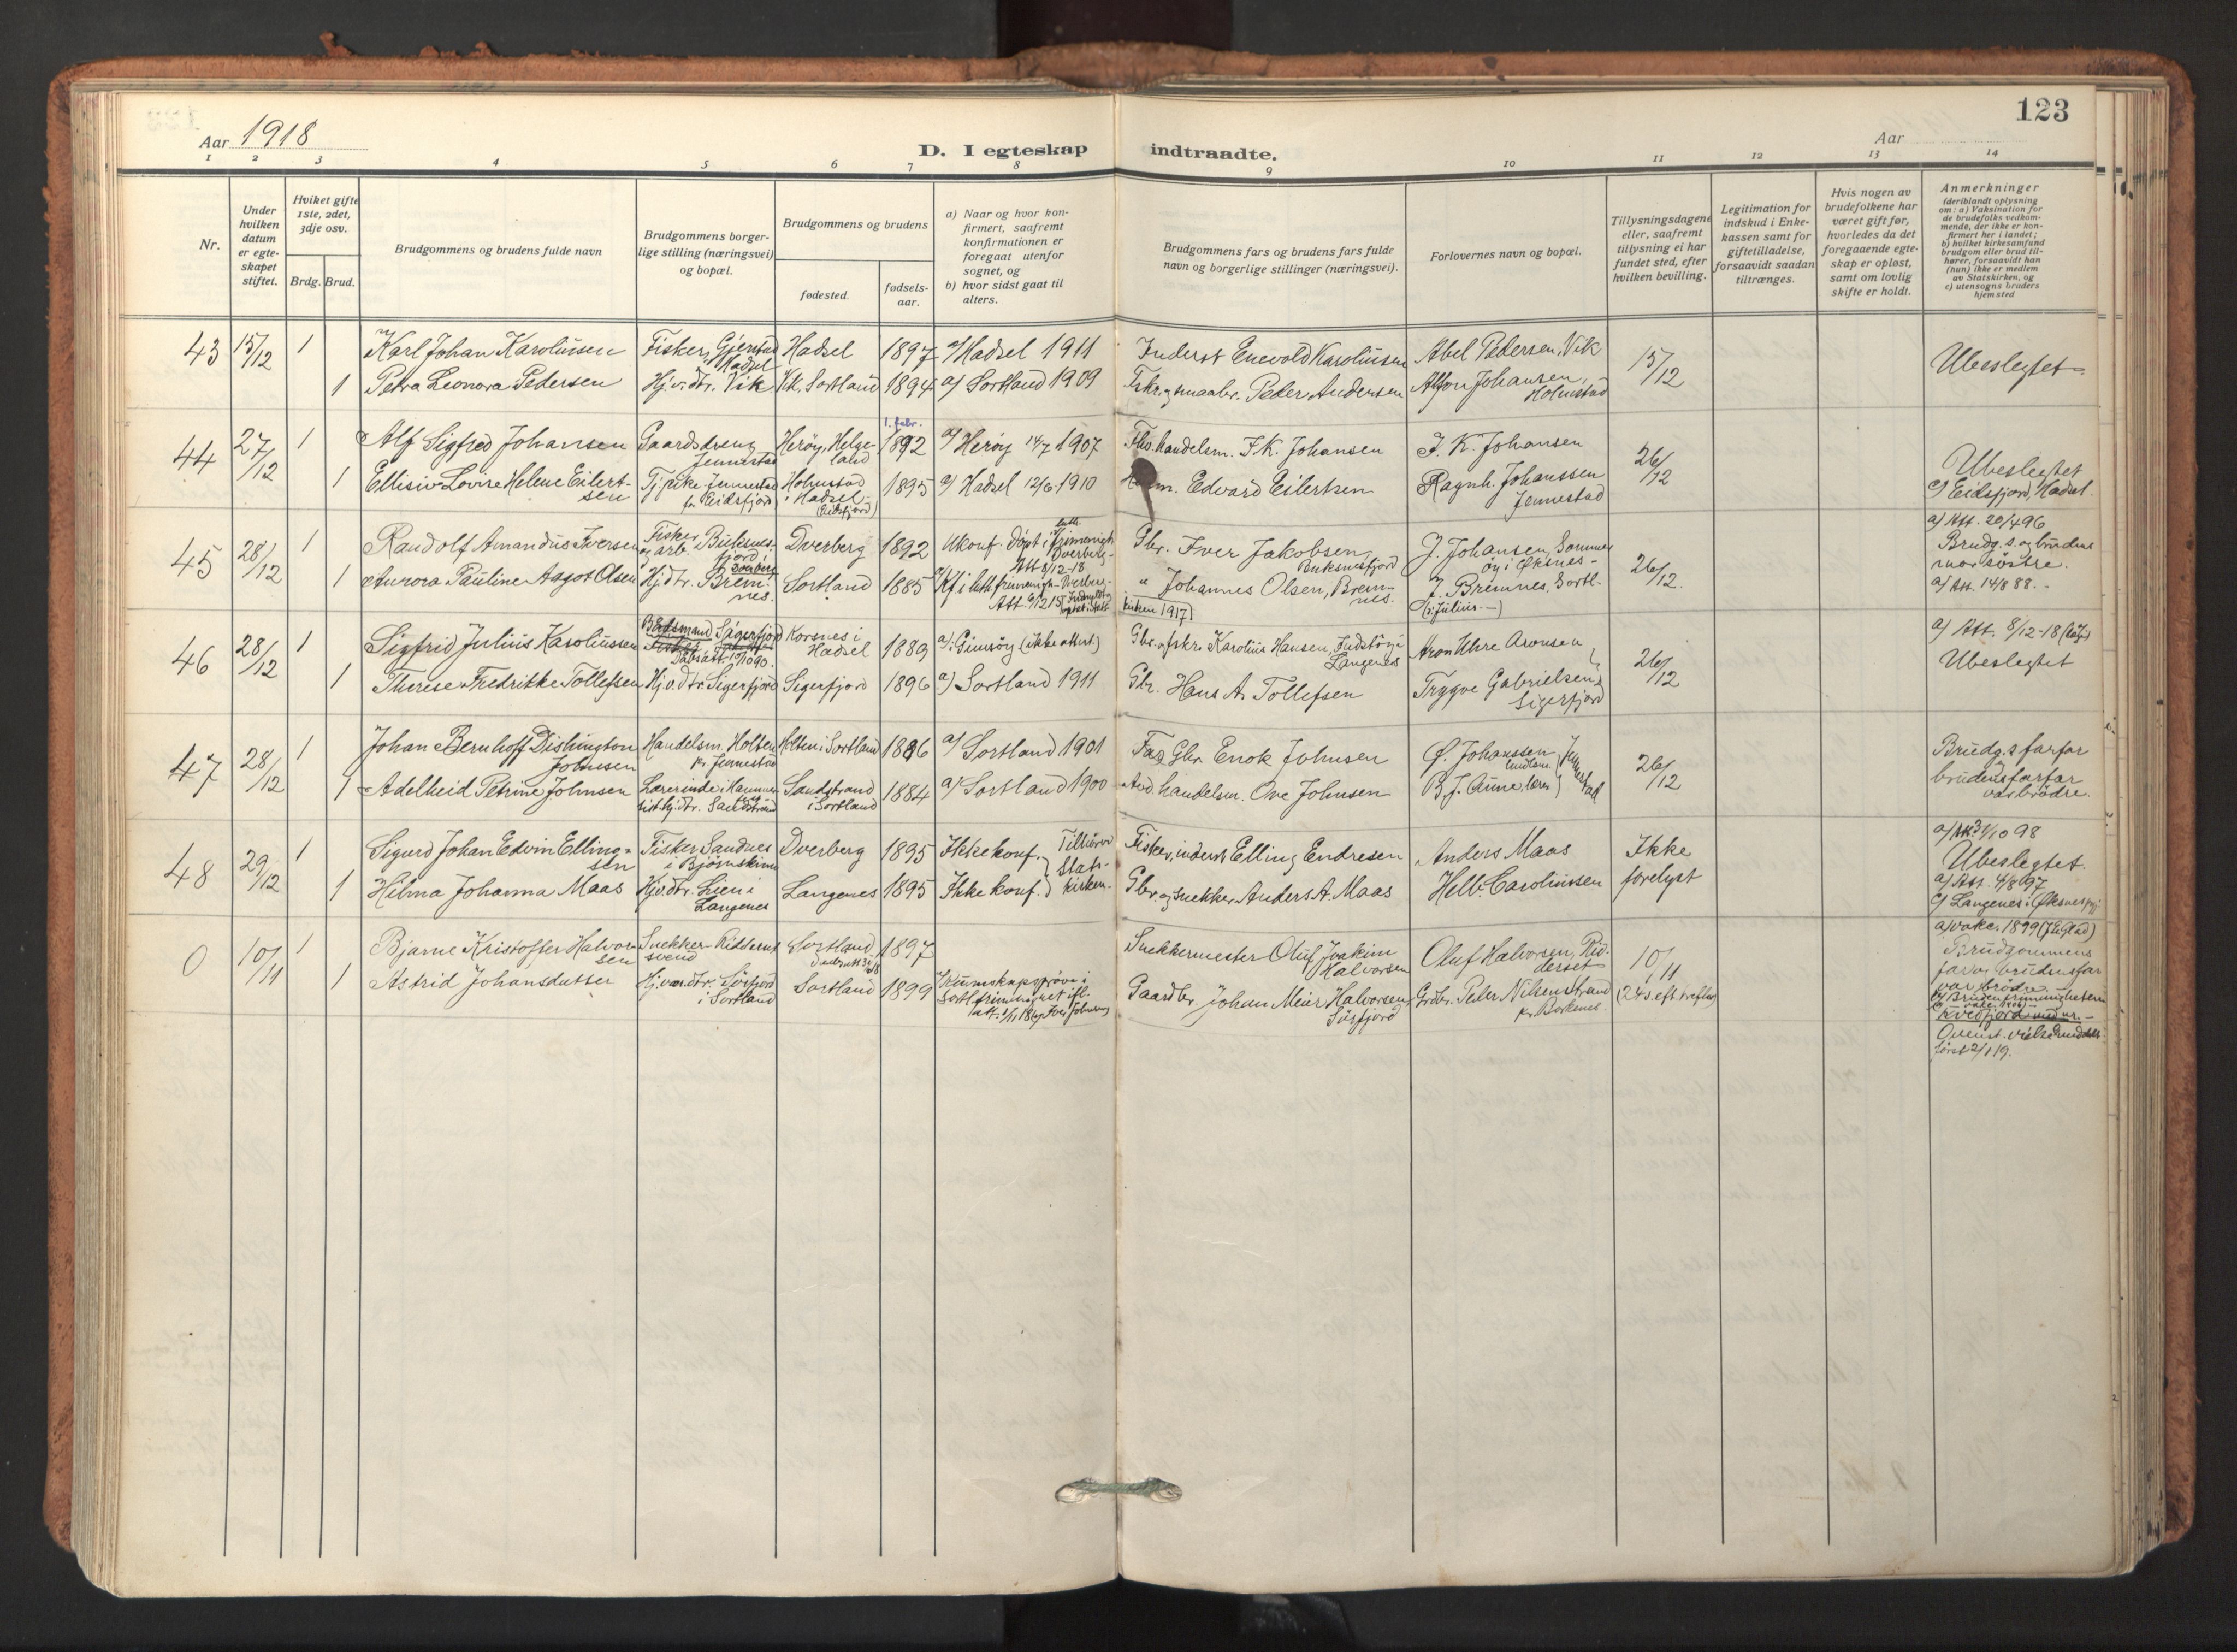 123
Aar 1918
D. I egteskap indtraadte.
Aar
1 2 3 4 5 6 7 8 9 10 11 12 13 14
Nr.
Under hvilken datum er egteskapet stiftet.
Hviket gifte 1ste, 2det, 3dje osv.
Brdg. Brud.
Brudgommens og brudens fulde navn
Brudgommens borger-
lige stilling (næringsvei)
og bopæl.
Brudgommens og brudens
fødested.
fødsels-
aar.
a) Naar og hvor kon-
firmert, saafremt
konfirmationen er
foregaat utenfor
sognet, og
b) hvor sidst gaat til
alters.
Brudgommens fars og brudens fars fulde
navn og borgerlige stillinger (næringsvei).
Forlovernes navn og bopæl.
Tillysningsdagene
eller, saafremt
tillysning ei har
fundet sted, efter
hvilken bevilling.
Legitimation for
indskud i Enke-
kassen samt for
giftetilladelse,
forsaavidt saadan
tiltrænges.
Hvis nogen av
brudefolkene har
været gift før,
hvorledes da det
foregaaende egte-
skap er opløst,
samt om lovlig
skifte er holdt.
Anmerkninger
(deriblandt oplysning
om: a) Vaksination for
de brudefolks vedkom-
mende, der ikke er kon-
firmert her i landet;
b) hvilket kirkesamfund
brudgom eller brud til-
hører, forsaavidt han
(hun) ikke er medlem
av Statskirken, og
c) utensogns bruders
hjemsted
43 15/12 1 Karl Johan Karoliussen Fisker, Gjerstad Hadsel Hadsel 1897 a) Hadsel 1911 Inderst Enevold Karoliussen Abel Pedersen, Vik 15/12 Ubeslegtet
1 Petra Leonora Pedersen Hj.v. dtr. Vik Vik, Sortland 1894 a) Sortland 1909 Fskr. og smaabr. Peder Andersen Alfon Johansen, Holmstad
44 27/12 1 Alf Sigfred Johansen Gaardsdreng Jennestad Herøy, Helgeland 1. febr. 1892 a) Herøy 14/7 1907 Fho. handelsm. J. K. Johansen J. K. Johansen 26/12 Ubeslegtet
1 Ellisiv Lovise Helene Eilertsen Tj.pike Jennestad fr. Eidsfjord Holmstad i Hadsel (Eidsfjord) 1895 a) Hadsel 12/6 1910 Edvard Eilertsen Ragnh. Johanssen Jennestad c) Eidsfjord, Hadsel
45 28/12 1 Randolf Amandus Iversen Fisker og arb. Buksnesfjord i Dverberg Dverberg 1892 Ukonf. Døpt i luth. frimenigh. Dverberg Att 8/12-18 Gbr. Iver Jakobsen, Buksnesfjord J. Johansen, Sommerøy i Øksnes 26/12. a) Att. 20/4 96 Brudg.s og brudens mor søstre.
1 Aurora Pauline Aagot Olsen Hj. dtr. Bremnes. Sortland 1885 Kf. i luth frimenigh. Dverberg. Att. 6/12 15 kirken 1917) " Johannes Olsen, Bremnes. J. Bremnes, Sortl. (: Julius —) a) Att. 14/8 88.
46 28/12 1 Sigfrid Julius Karoliussen Baadsmand Sigerfjord Fisker Dåbsatt. 19/10 90. Korsnes i Hadsel 1889 a) i Gimsøy (ikke attest) Gbr. og fskr. Karolius Hansen, Langenes Aron Uhre Aronsen 26/12 a) Att. 8/12-18 Ubeslegtet
1 Therese Fredrikke Tollefsen Hj.v. dtr. Sigerfjord Sigerfjord 1896 a) Sortland 1911 Gbr. Hans A. Tollefsen Trygve Gabrielsen Sigerfjord
47 28/12 1 Johan Bernhoff Dishington Johnsen Handelsm. Holten pr. Jennestad Holten i Sortland 1886 a) Sortland 1901 Gbr. Enok Johnsen Ø. Johanssen Jennestad 26/12 Brudg.s farfar og brudens farfar var brødre.
1 Adelheid Petrine Johnsen Lærerinde i Hammer Sandstrand Sandstrand i Sortland 1884 a) Sortland 1900 Avd. handelsm. Ove Johnsen B. J. Aune, lærer
48 29/12 1 Sigurd Johan Edvin Ellingsen Fisker Sandnes i Bjørnskinn Dverberg 1895 Ikke konf. Tilhører Statskirken. Fisker, inderst Elling Endresen Anders Maas Ikke forelyst a) Att. 31/10 98 Ubeslegtet
1 Helma Johanna Maas Hj.v. dtr. Lien i Langenes Langenes 1895 Ikke konf. Gbr. og snekker Anders A. Maas Helb. Caroliussen a) Att. 4/8 97 c) Langenes i Øksnes pgj.
0 10/11 1 Bjarne Kristoffer Halvorsen Snekkersvend Ridderset Sortland 1897 Snekkermester Oluf Joakim Halvorsen Oluf Halvorsen, Ridderset 10/11 a) vakc. 1899 Brudgommens far og brudens far var brødre.
1 Astrid Johansdatter Hj.v. dtr. Sörfjord i Sortland Sortland 1899 Kundskapsprøve i Sortl. frimenighet Gaardbr. Johan Meier Halvorsen Sörfjord Grdbr. Peder Nilsen Strand pr. Borkenes Kvedfjord først 2/1 19.